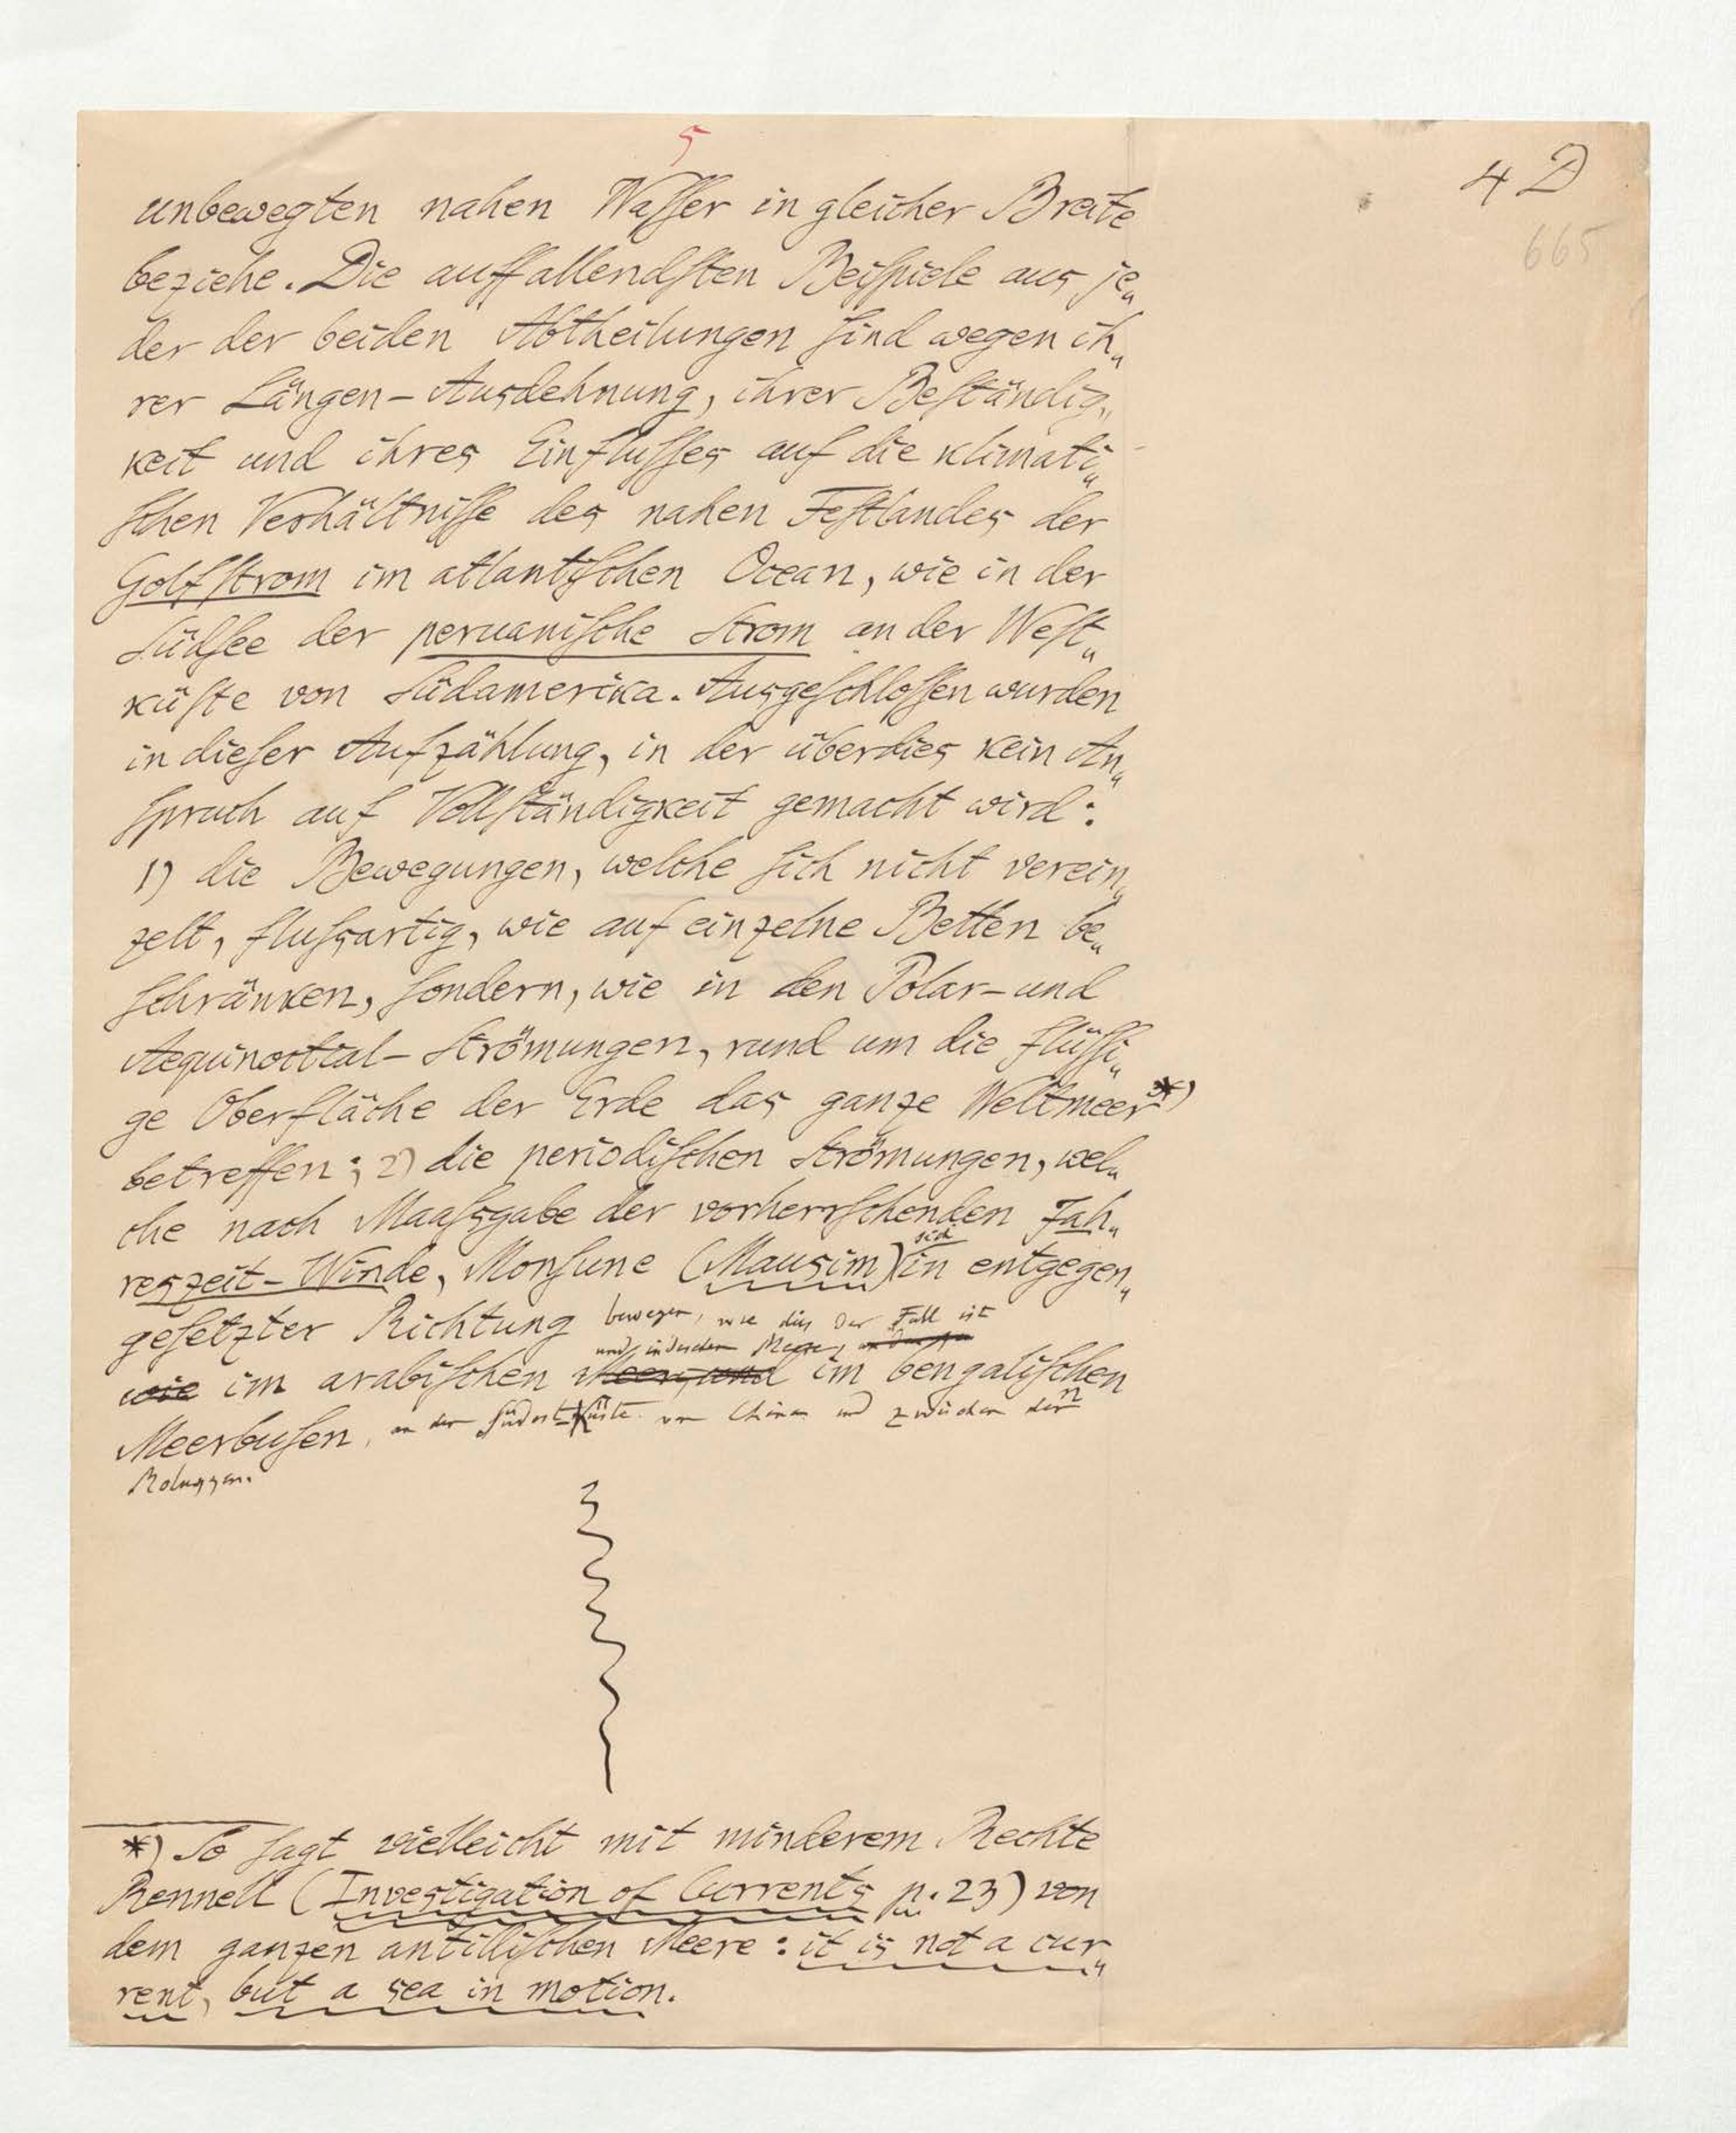 5
4 D
665
unbewegten nahen Wasser in gleicher Breite
beziehe. Die auffallendsten Beispiele aus je„
der der beiden Abtheilungen sind wegen ih„
rer Längen-Ausdehnung, ihrer Beständig„
keit und ihres Einflusses auf die klimati„
schen Verhältnisse des nahen Festlandes der
Golfstrom im atlantischen Ocean, wie in der
Südsee der peruanische Strom an der West„
küste von Südamerika. Ausgeschlossen wurden
in dieser Aufzählung, in der überdies kein An„
spruch auf Vollständigkeit gemacht wird:
1) die Bewegungen, welche sich nicht verein„
zelt, flussartig, wie auf einzelne Betten be„
schränken, sondern, wie in den Polar- und
Aequinoctial-Strömungen, rund um die flüssi„
ge Oberfläche der Erde das ganze Weltmeer *)
betreffen; 2) die periodischen Strömungen, wel„
che nach Maassgabe der vorherrschenden Jah„
sich
reszeit-Winde, Monsune (Mausim) in entgegen„
gesetzter Richtung bewegen, wie dies der Fall ist
und indischen Meere,
wie im arabischen Meer, und im bengalischen
Meerbusen, an der Südost-Küste von China und zwischen den
Moluggen.
*) So sagt vielleicht mit minderem Rechte
Rennell (Investigation of Currents p. 23) von
dem ganzen antillischen Meere: it is not a cur„
rent, but a sea in motion.